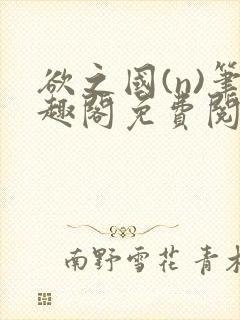 欲之國(n)筆
趣閣免費閱
南野雪花 青木